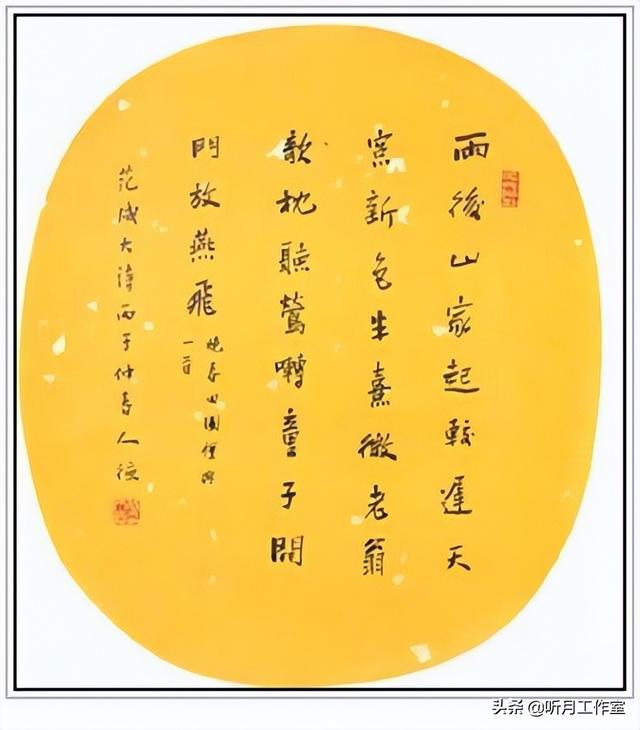 雨後山家起較遲天
窓新色半熹微老翁
欹枕聽鶯囀童子開
門放燕飛
晚春田園雜興
一首
范成大詩丙子仲春人
头条 @听月工作室